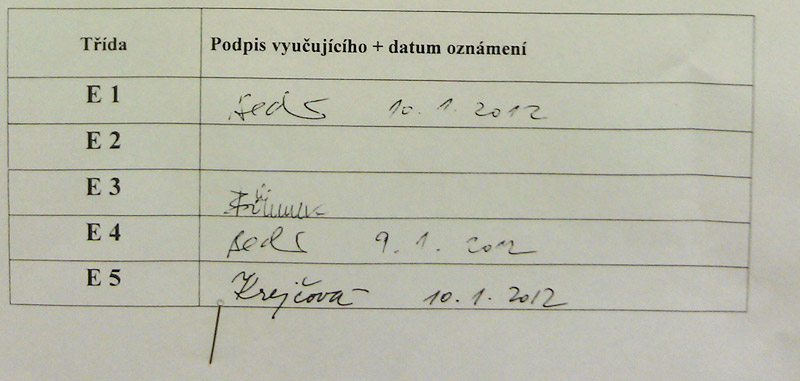 Třída Podpis vyučujícího + datum oznámení
E 1 10.1.2012
E 2
E 3
E 4 9.1.2012
E 5 Krejčová 10.1.2012